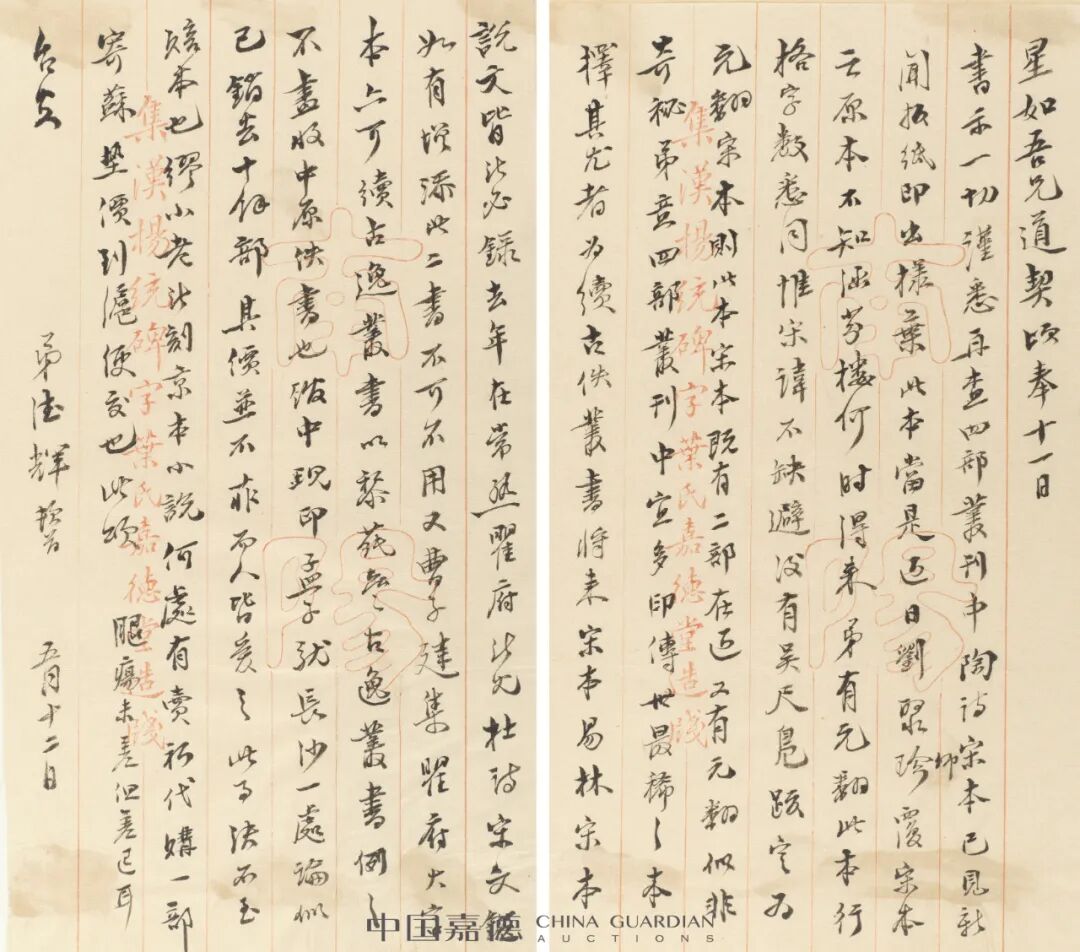 星如吾兄道契顷奉十一日
書示一切谨悉再查四部叢刊中陶诗宋本已見新
聞报纸即出樣葉此本當是近日劉翠珍覆宋本
云原本不知涵芬楼何时得来弟有元翻此本行
格字数悉同惟宋諱不缺避没有吴尺凫跋定为
元翻宋本則此本宋本既有二部在近又有元翻似非
奇祕弟意四部叢刊中宜多印傳世最稀之本
擇其尤者为續古佚叢書将来宋本易林宋本
說文皆必錄去年在常熟瞿府见杜诗宋文鑑
如有增添此二書不可不用又曹子建集瞿府大字
本亦可續古逸叢書以黎蒓古逸叢書例之
不盡收中原佚書也板中現印孟子就長沙一處論似
已銷去十餘部其價並不非而人皆爱之此事决不至
賠本也缪小老所刻京本小說何處有賣祈代購一部
寄蘇墊價到滬便交也此颂
台安
弟德輝頓首
五月十二日
腿瘍未差但差已耳
集漢楊統碑字葉氏嘉德堂造牋
集漢楊統碑字葉氏嘉德堂造牋
中国嘉德 CHINA GUARDIAN
AUCTIONS